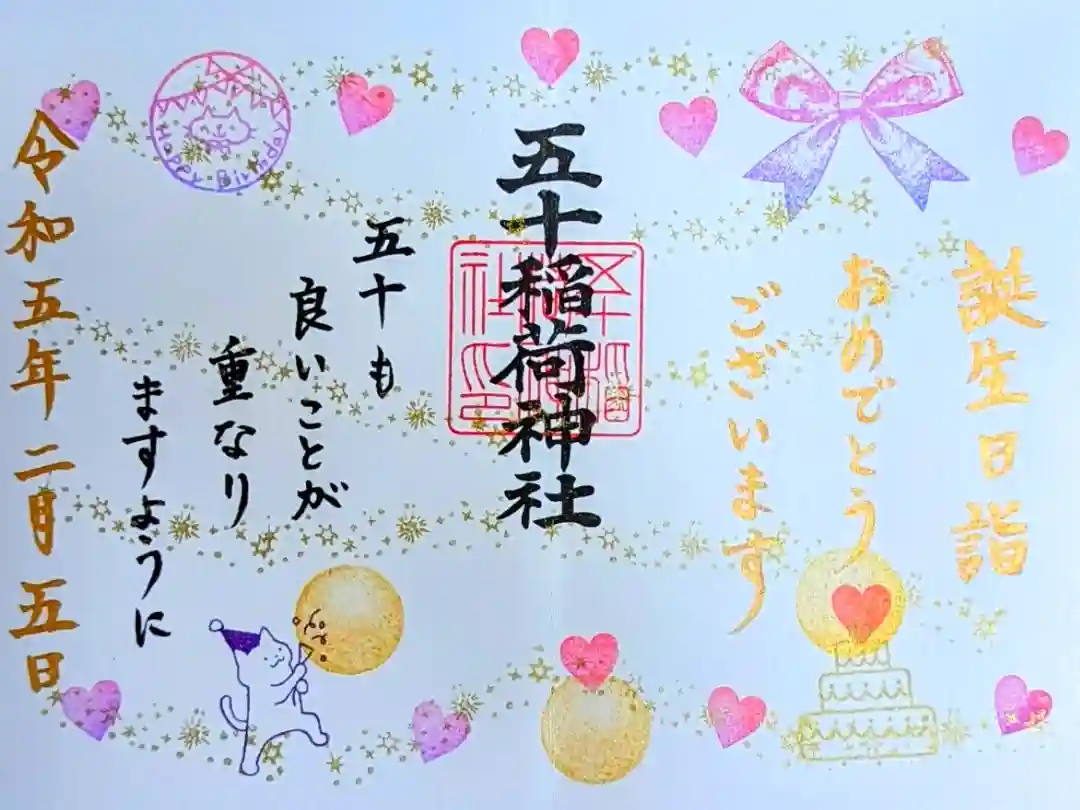 誕生日詣
おめでとう
ございます
五十稲荷神社
五十も
良いことが
重なり
ますように
令和五年二月五日
Happy Birthday